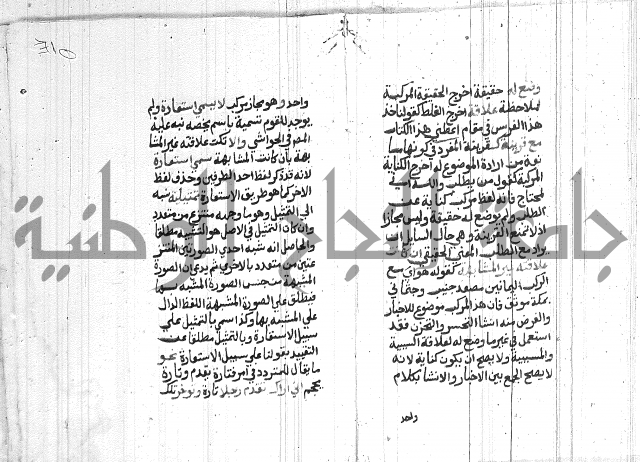 وضع له حقيقة اخرج الحقيقة المركبة
لملاحظة علاقة اخرج الغلط كقولنا خذ
هذا الفرس في مقام اعطني هذا الكتاب
مع قرينة كقرينة المفرد في كونها ما
نعة من ارادة الموضوع له اخرج الكناية
المركبة كقول من يطلب والله اني
لمحتاج فانه لفظ مركب كناية عن
الطلب ولم يوضع له حقيقة وليس مجازا
اذ لا تمنع القرينة وهي حال السايل ان
يراد مع الطلب المعنى الحقيقي ان كان
علاقته غير المشابهة كقوله هواي مع
الركب اليمانين مصعد جنيب وجثماني
بمكة موثق فان هذا المركب موضوع للاخبار
والغرض منه انشا التحسر والتحزن فقد
استعمل في غير ما وضع له لعلاقة السببية
والمسببية ولا يصح ان يكون كناية لانه
لا يصح الجمع بين الاخبار والانشا بكلام
واحد
واحد وهو مجاز مركب لا يسمى استعارة ولم
يوجد للقوم تسمية باسم يخصه نبه عليه
المص في الحواشي والا تكن علاقته غير المشا
بهة بان كانت المشابهة سمي استعارة
لانه قد ذكر لفظ احد الطرفين وحذف لفظ
الاخر كما هو طريق الاستعارة تمثيلية نسبة
الى التمثيل وهو ما وجهه منتزع من متعدد
وان كان التمثيل في الاصل هو التشبيه مطلقا
والحاصل انه شبه احدى الصورتين المنتز
عتين من متعدد بالاخرى ثم يدعي ان الصورة
المشبهة من جنس الصورة المشبه بها
فيطلق على الصورة المشبهة اللفظ الدال
على المشبه بها وكذا سمي بالتمثيل على
سبيل الاستعارة وبالتمثيل مطلقا عن
التقييد بقولنا على سبيل الاستعارة نحو
ما يقال للمتردد في امر فتارة يقدم وتارة
يحجم اني اراك تقدم رجلا تارة وتوخر تلك
جامعة النجاح الوطنية